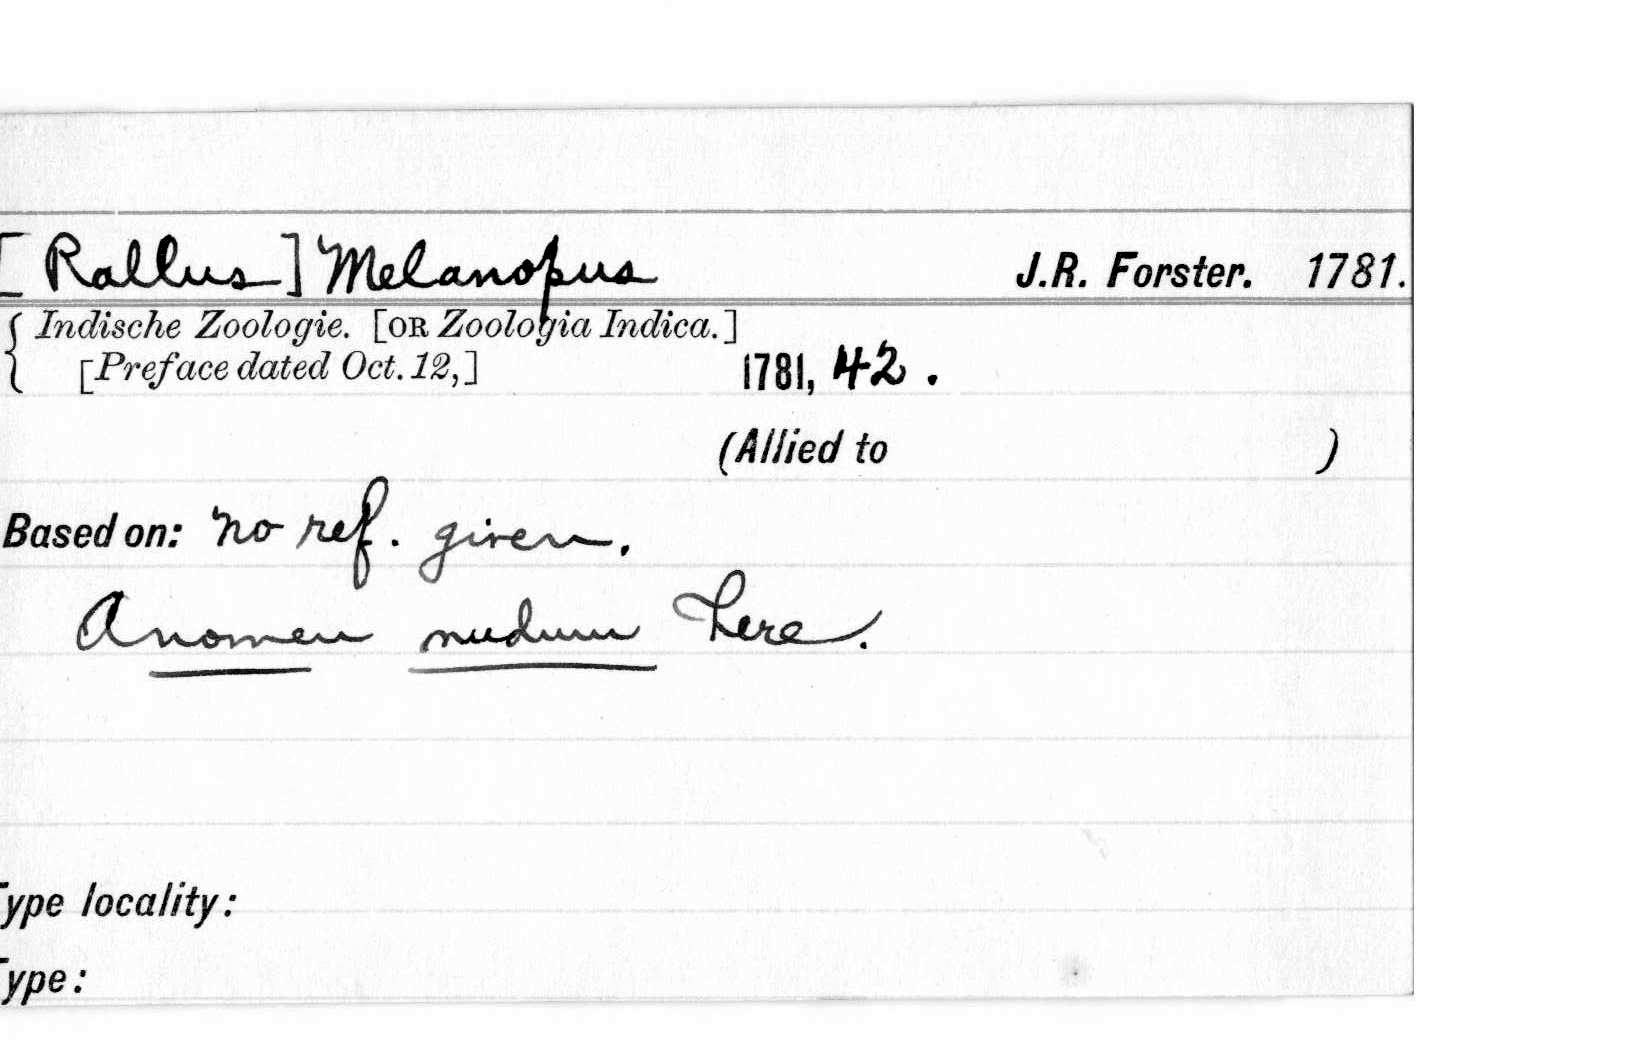 [Rallus] Melanopus J.R. Forster. 1781.
Indische Zoologie. [OR Zoologia Indica.]
[Preface dated Oct. 12,] 1781, 42.
(Allied to )
Based on: no ref. given.
A nomen nudum here.
Type locality:
Type: